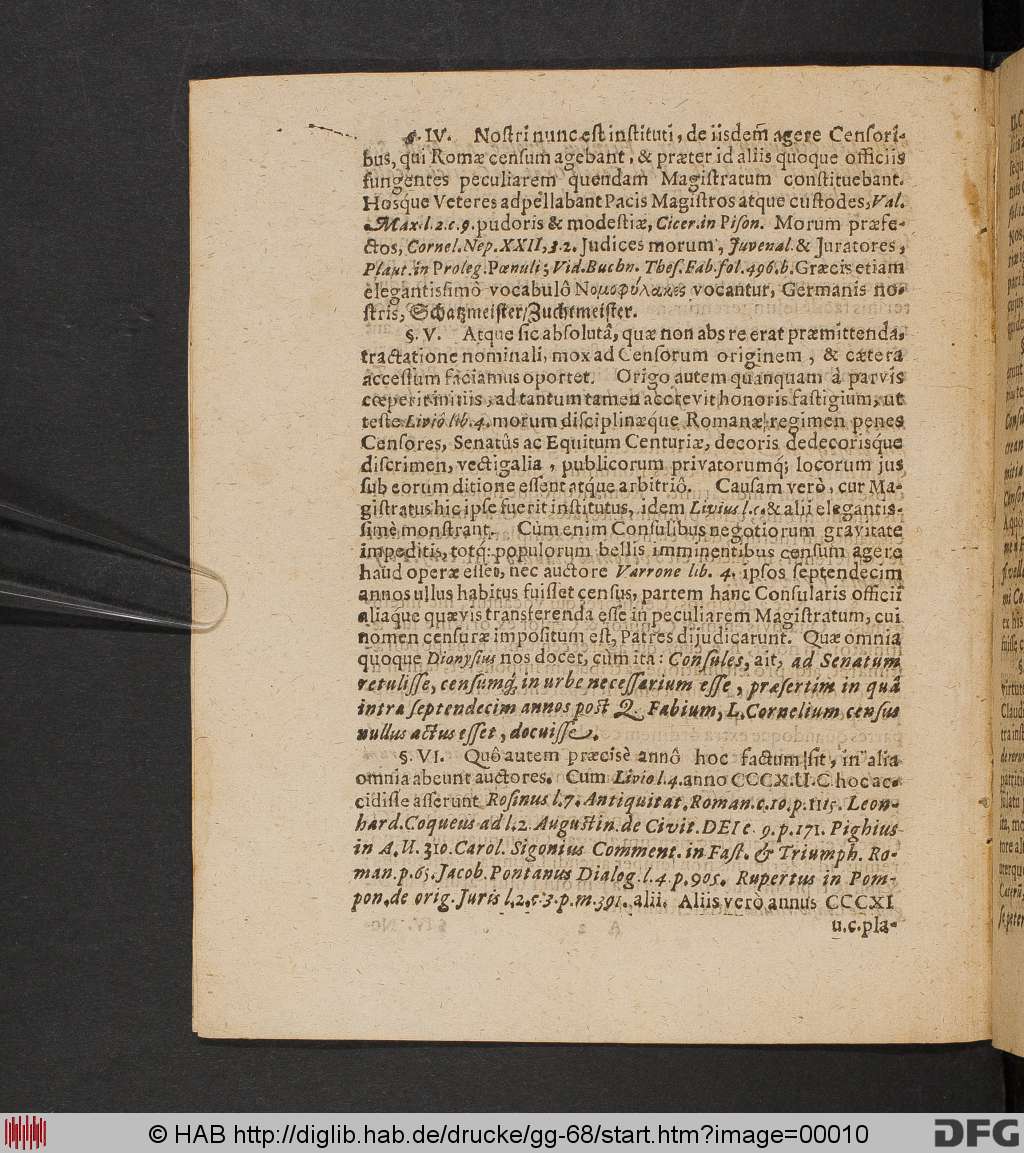 §. IV. Nostri nunc est instituti, de iisdem̃ agere Censori-
bus, qui Romæ censum agebant, & præter id aliis quoque officiis
fungentes peculiarem quendam Magistratum constituebant.
Hosque Veteres adpellabant Pacis Magistros atque custodes, Val.
Max. l. 2. c. 9. pudoris & modestiæ, Cicer. in Pison. Morum præfe-
ctos, Cornel. Nep. XXII, 3. 2. Judices morum, Juvenal. & Juratores,
Plaut. in Proleg. Pœnuli; Vid. Buchn. Thes. Fab. fol. 496. b. Græcis etiam
elegantissimô vocabulô Νομοφύλακες vocantur, Germanis no-
stris, Schatzmeister/Zuchtmeister.
§. V. Atque sic absolutâ, quæ non abs re erat præmittenda,
tractatione nominali, mox ad Censorum originem, & cætera
accessum faciamus oportet. Origo autem quanquam à parvis
cœperit initiis, ad tantum tamen accrevit honoris fastigium, ut
teste Liviô lib. 4. morum disciplinæque Romanæ regimen penes
Censores, Senatûs ac Equitum Centuriæ, decoris dedecorisque
discrimen, vectigalia, publicorum privatorumq́; locorum jus
sub eorum ditione essent atque arbitriô. Causam verò, cur Ma-
gistratus hic ipse fuerit institutus, idem Livius l. c. & alii elegantis-
simè monstrant. Cùm enim Consulibus negotiorum gravitate
impeditis, totq́; populorum bellis imminentibus censum agere
haud operæ esset, nec auctore Varrone lib. 4. ipsos septendecim
annos ullus habitus fuisset census, partem hanc Consularis officii
aliaque quævis transferenda esse in peculiarem Magistratum, cui
nomen censuræ impositum est, Patres dijudicarunt. Quæ omnia
quoque Dionysius nos docet, cùm ita: Consules, ait, ad Senatum
retulisse, censumq́; in urbe necessarium esse, præsertim in quâ
intra septendecim annos post Q. Fabium, L. Cornelium census
nullus actus esset, docuisse.
§. VI. Quô autem præcisè annô hoc factum sit, in alia
omnia abeunt auctores. Cum Livio l. 4. anno CCCX. U. C. hoc ac-
cidisse asserunt Rosinus l. 7. Antiquitat. Roman. c. 10. p. 1115. Leon-
hard. Coqueus ad l. 2. Augustin. de Civit. DEI c. 9. p. 171. Pighius
in A. U. 310. Carol. Sigonius Comment. in Fast. & Triumph. Ro-
man. p. 65. Jacob. Pontanus Dialog. l. 4. p. 905. Rupertus in Pom-
pon. de orig. Juris l. 2. c. 3. p. m. 391. alii. Aliis verò annus CCCXI
u. c. pla-
© HAB http://diglib.hab.de/drucke/gg-68/start.htm?image=00010
DFG